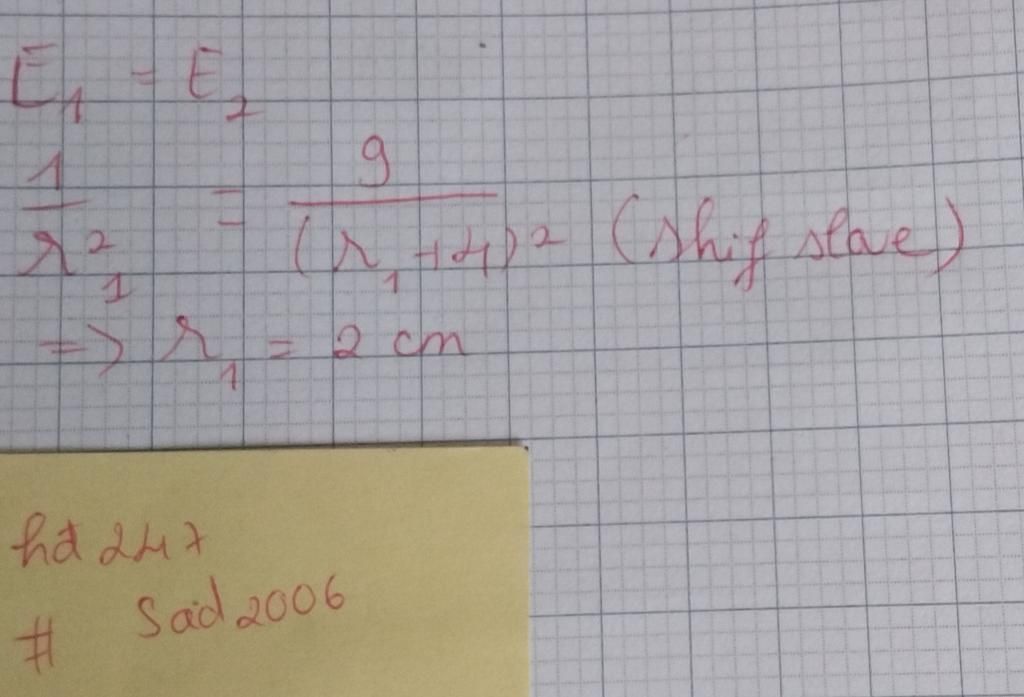 E₁ = E₂
1/r₁² = 9/(r₁+4)² (shif slove)
=> r₁ = 2 cm
hd 247
# Sad2006